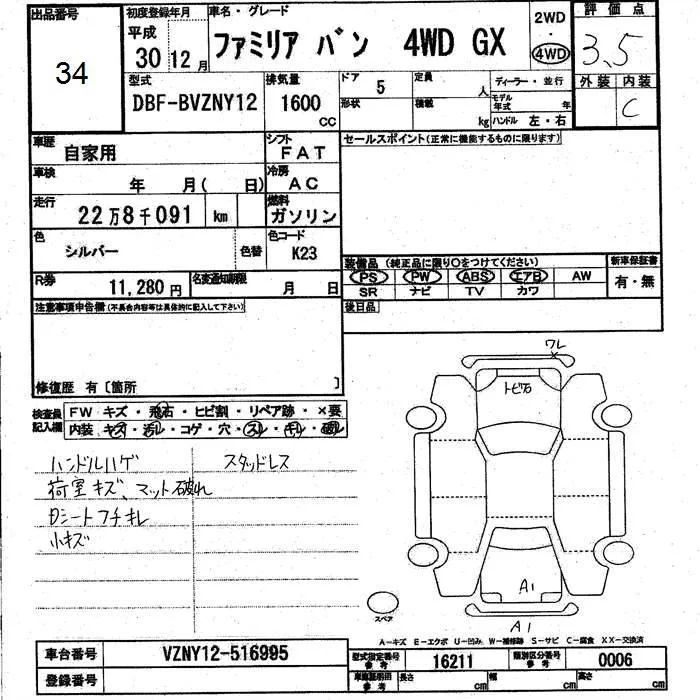 出品番号
34
初度登録年月
平成
30 12 月
車名・グレード
ファミリア バン 4WD GX
2WD
・
4WD
評価点
3.5
外装 内装
C
型式
DBF-BVZNY12
排気量
1600
CC
ドア 5
形状
定員 人
積載 kg
ディーラー・並行
モデル年式 年
ハンドル 左・右
車歴 自家用
シフト FAT
車検 年 月( 日)
冷房 AC
走行 22万8千091 km
燃料 ガソリン
色 シルバー 色替
色コード K23
R券 11,280円
名変通知期限 月 日
セールスポイント(正常に機能するものに限ります)
装備品(純正品に限り○をつけてください)
PS PW ABS エアB AW
SR ナビ TV カワ
新車保証書
有・無
後日品
注意事項申告欄(不具合内容等は具体的に記入して下さい)
修復歴 有〔箇所 〕
検査員記入欄
FW キズ・飛石・ヒビ割・リペア跡・×要
内装 キズ・汚レ・コゲ・穴・スレ・キレ・破レ
ハンドルハゲ スタッドレス
荷室キズ、マット破れ
Dシートフチキレ
小キズ
ワレ
×
トビ石
A1
A1
スペア
A-キズ E-エクボ U-凹み W-補修跡 S-サビ C-腐食 XX-交換済
車台番号 VZNY12-516995
登録番号
型式指定番号 参考 16211
類別区分番号 参考 0006
長さ cm 幅 cm 高さ cm